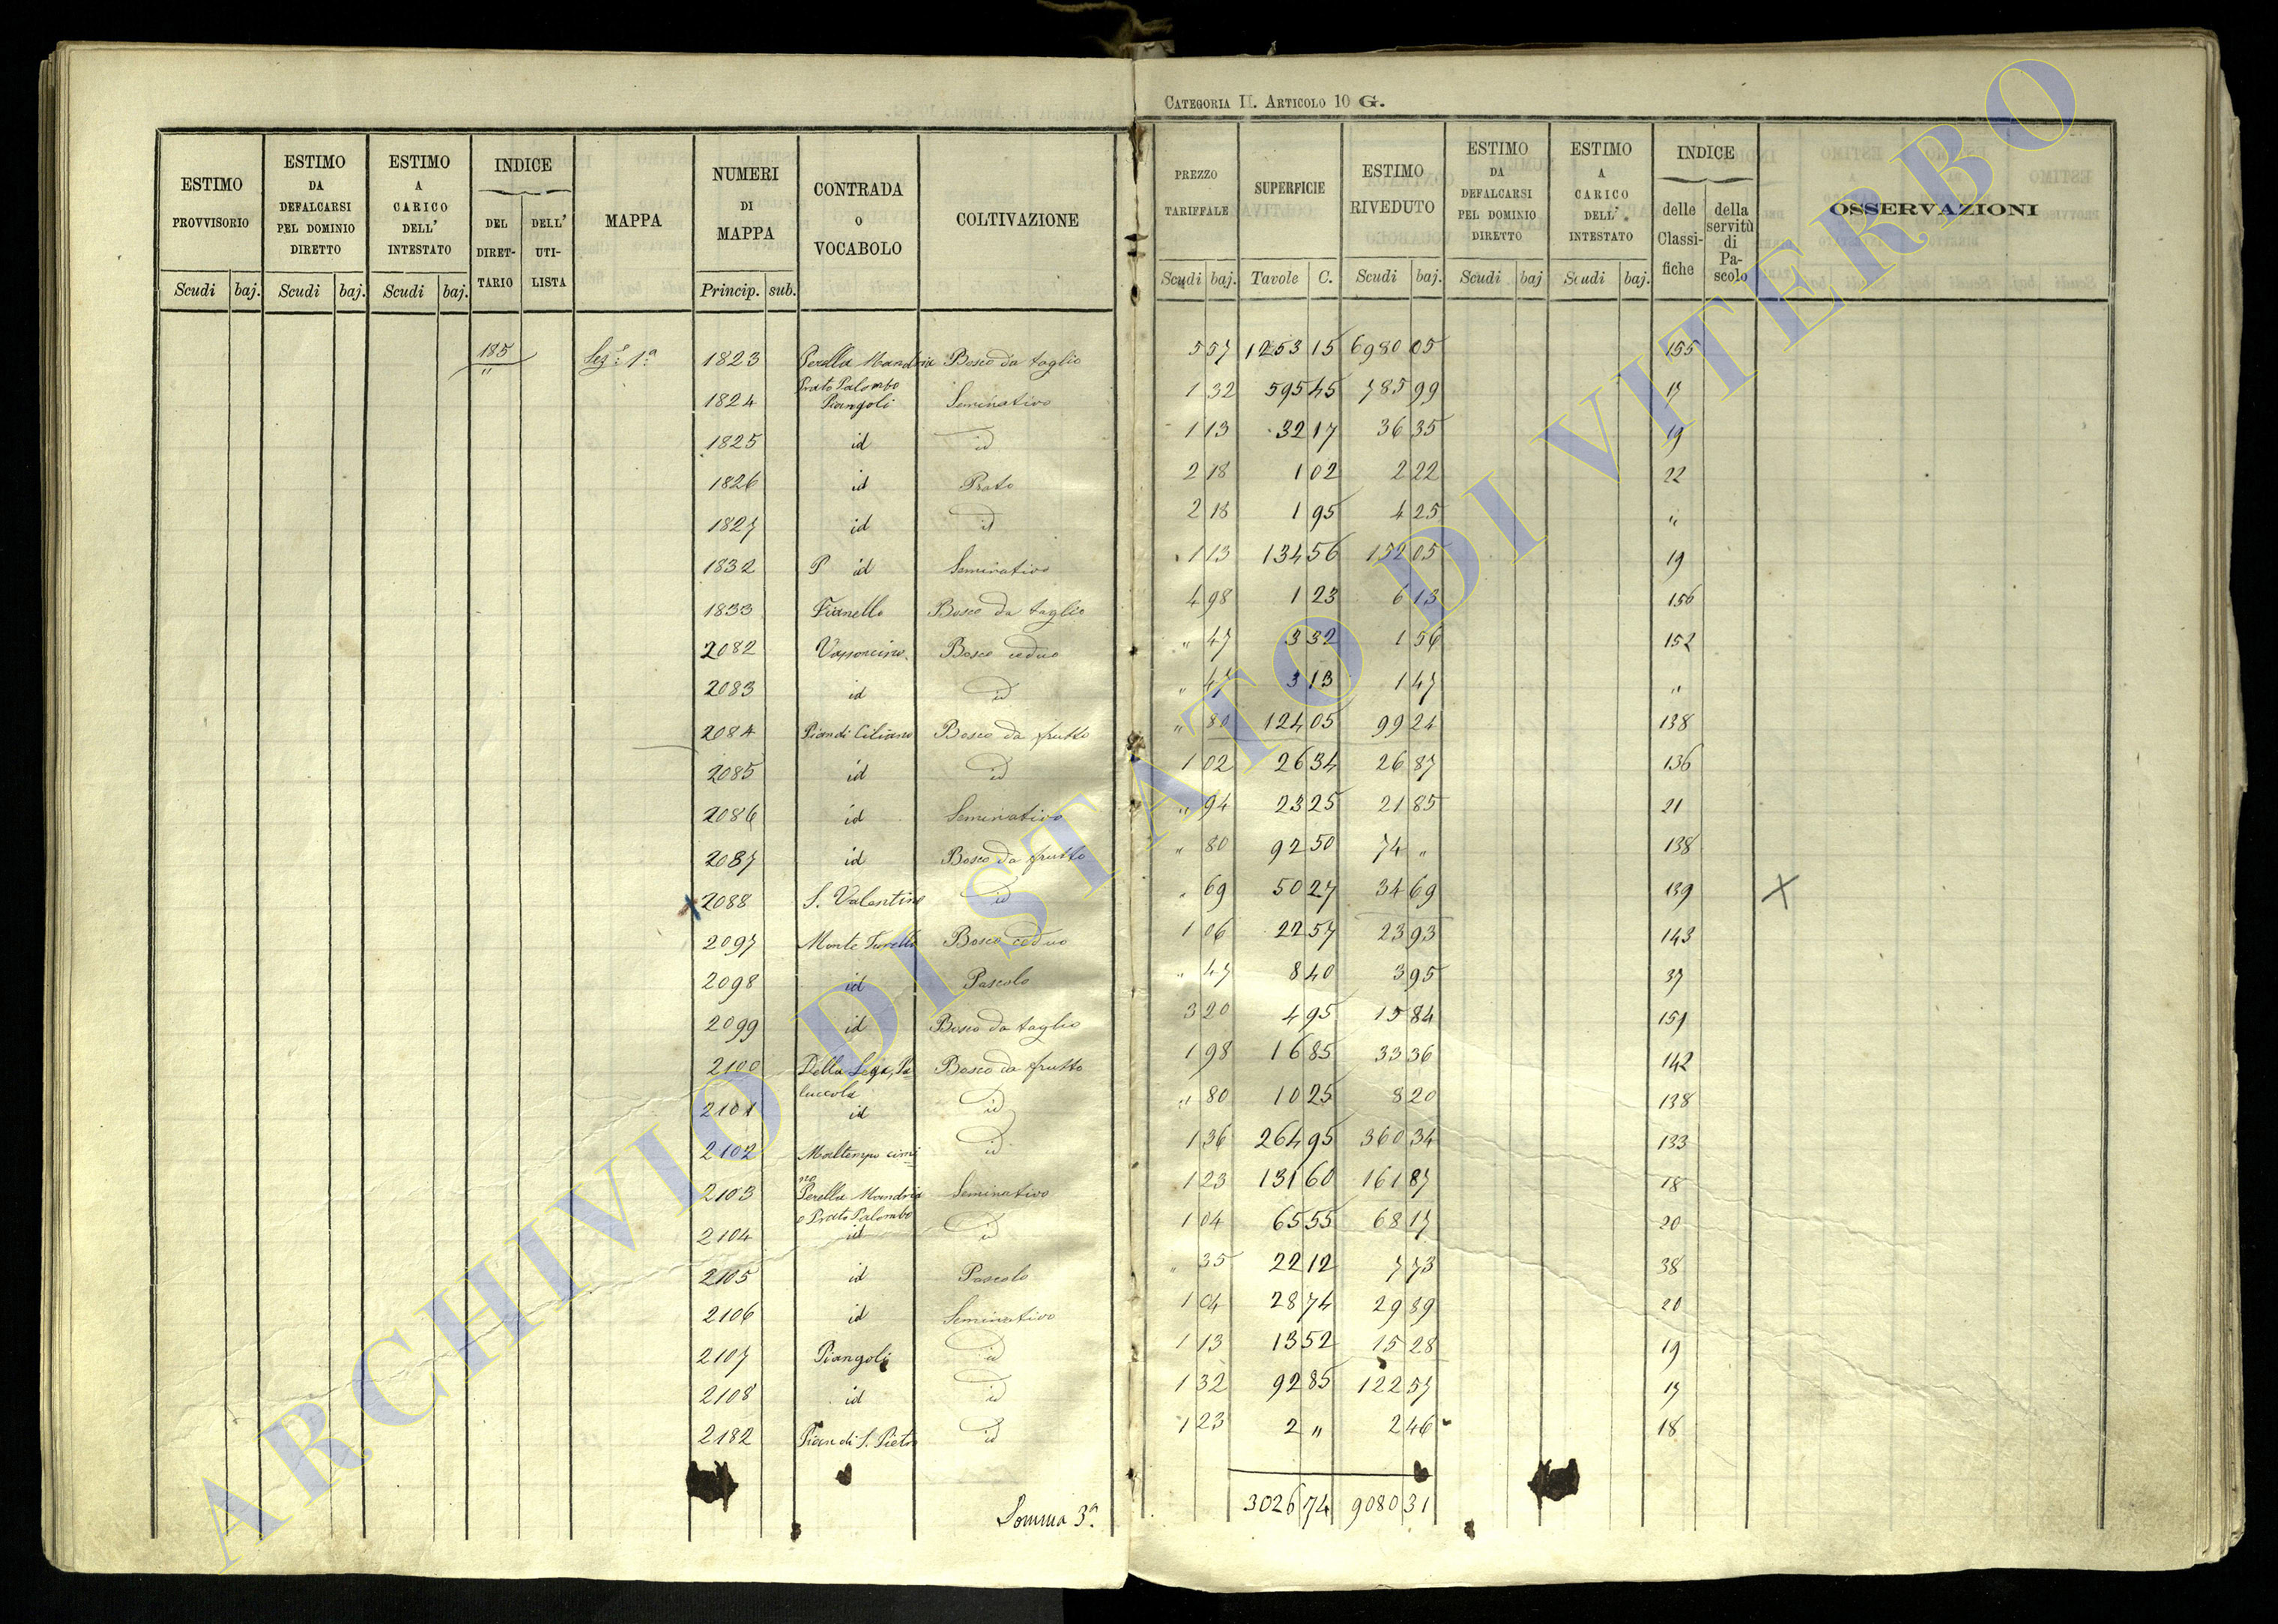 CATEGORIA II. ARTICOLO 10 G.
ESTIMO PROVVISORIO Scudi baj.
ESTIMO DA DEFALCARSI PEL DOMINIO DIRETTO Scudi baj.
ESTIMO A CARICO DELL' INTESTATO Scudi baj.
INDICE DEL DIRET-TARIO DELL' UTI-LISTA
MAPPA
NUMERI DI MAPPA Princip. sub.
CONTRADA o VOCABOLO
COLTIVAZIONE
PREZZO TARIFFALE Scudi baj.
SUPERFICIE Tavole C.
ESTIMO RIVEDUTO Scudi baj.
ESTIMO DA DEFALCARSI PEL DOMINIO DIRETTO Scudi baj
ESTIMO A CARICO DELL' INTESTATO Scudi baj.
INDICE delle Classi-fiche della servitù di Pa-scolo
OSSERVAZIONI
185 " Sez.e 1.a 1823 Perella Mandria Bosco da taglio 5 57 1253 15 6980 05 155
Prato Palombo
1824 Piangoli Seminativo 1 32 595 45 785 99 17
1825 id id 1 13 32 17 36 35 19
1826 id Prato 2 18 1 02 2 22 22
1827 id id 2 18 1 95 4 25 "
1832 P id Seminativo 1 13 134 56 152 05 19
1833 Fianello Bosco da taglio 4 98 1 23 6 13 156
2082 Bosco ceduo " 47 3 32 1 56 152
2083 id id " 47 3 13 1 47 "
2084 Pian di Ciliano Bosco da frutto " 80 124 05 99 24 138
2085 id id 1 02 26 34 26 87 136
2086 id Seminativo " 94 23 25 21 85 21
2087 id Bosco da frutto " 80 92 50 74 " 138
x 2088 S. Valentino id " 69 50 27 34 69 139 X
2097 Monte Turello Bosco ceduo 1 06 22 57 23 93 143
2098 id Pascolo " 47 8 40 3 95 37
2099 id Bosco da taglio 3 20 4 95 15 84 159
2100 Della Lega, Pa= Bosco da frutto 1 98 16 85 33 36 142
luccola
2101 id id " 80 10 25 8 20 138
2102 Maltempo cimi= id 1 36 264 95 360 34 133
no
2103 Perella Mandria Seminativo 1 23 131 60 161 87 18
o Prato Palombo
2104 id id 1 04 65 55 68 17 20
2105 id Pascolo " 35 22 12 7 73 38
2106 id Seminativo 1 04 28 74 29 89 20
2107 Piangoli id 1 13 13 52 15 28 19
2108 id id 1 32 92 85 122 57 17
2182 Pian di S. Pietro id 1 23 2 " 2 46 18
Somma 3.a 3026 74 9080 31
ARCHIVIO DI STATO DI VITERBO